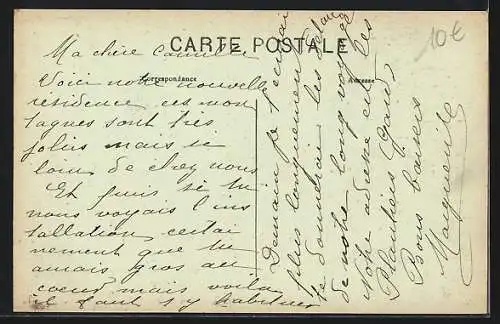 CARTE POSTALE
10€
Correspondance
Adresse
Ma chère Camille
Voici notre nouvelle
résidence ces mon
tagnes sont très
jolies mais si
loin de chez nous
Et puis si tu
nous voyais l'ins
tallation, certai
nement que tu
aurais gros au
coeur mais voilà
il faut s'y habituer
Demain je t'écrirai
plus longuement
te donnerai les
de notre long voyage
Notre adresse est les
Plantiers Gard
Bons baisers
Marguerite